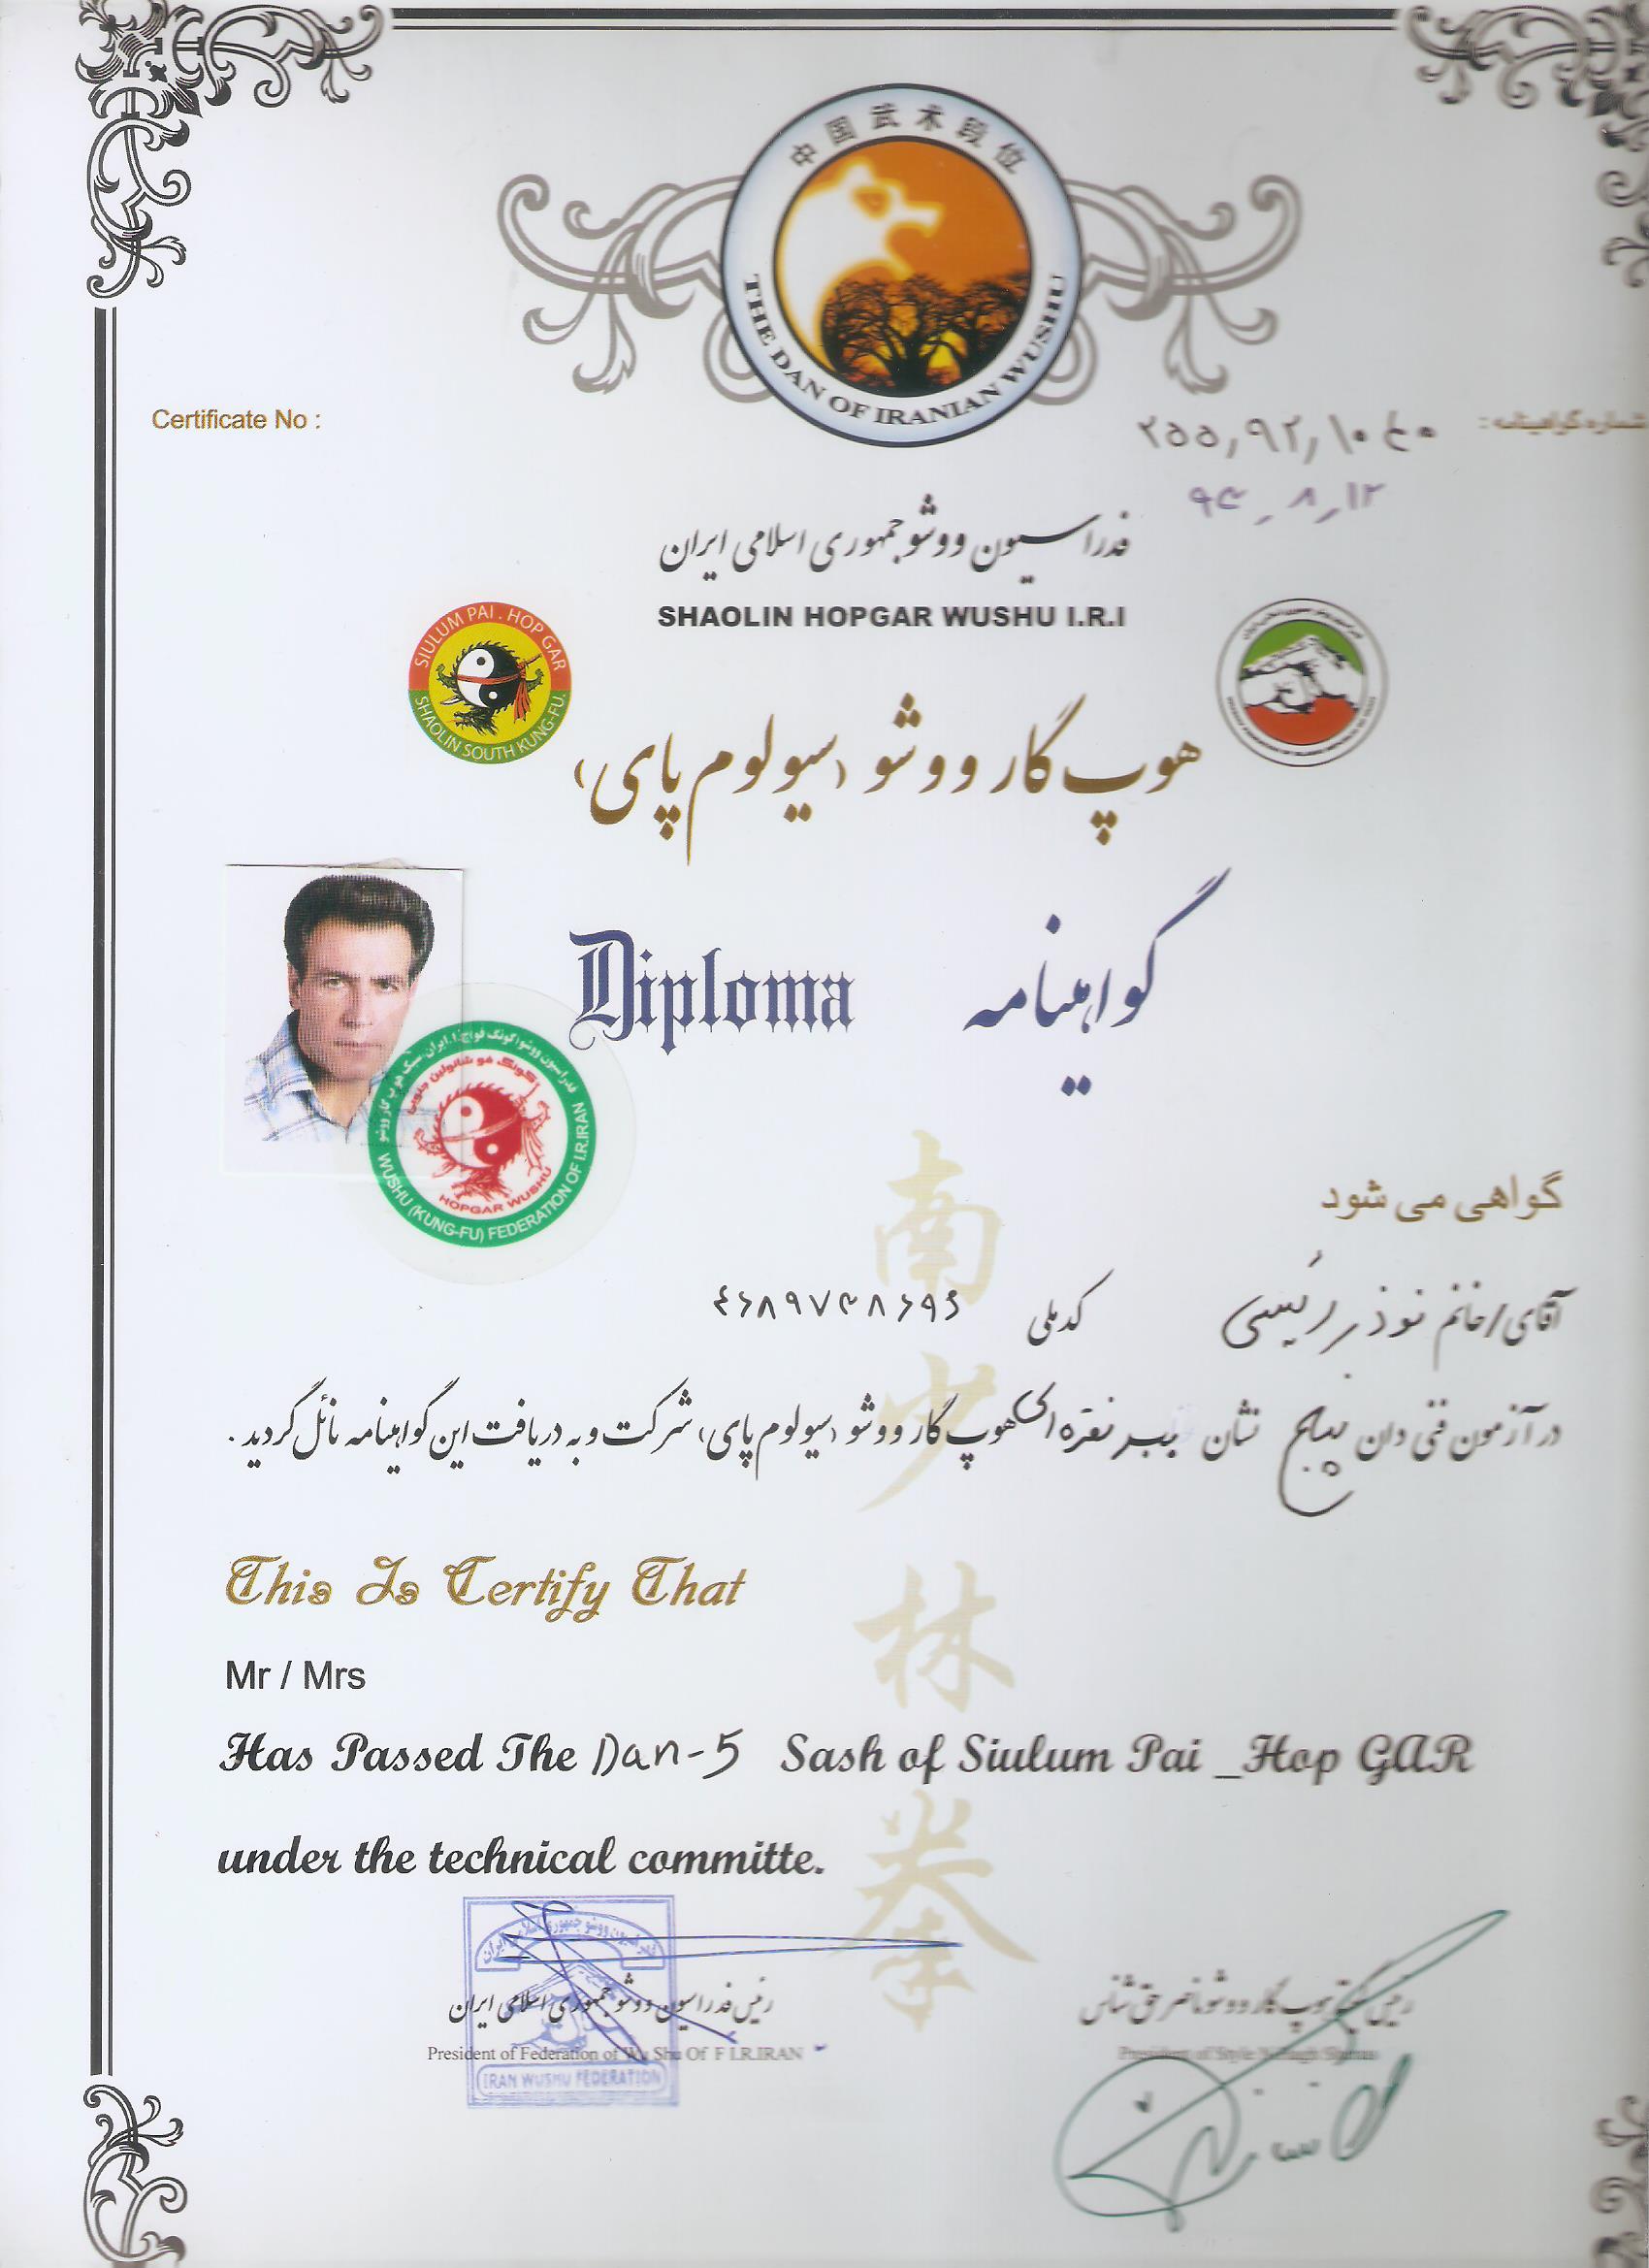 中国武术段位
THE DAN OF IRANIAN WUSHU
Certificate No :
شماره گواهینامه :
۹۴٫۸٫۱۲
فدراسیون ووشو جمهوری اسلامی ایران
SHAOLIN HOPGAR WUSHU I.R.I
SIULUM PAI . HOP GAR
SHAOLIN SOUTH KUNG-FU.
هوپ گار ووشو (سیولوم پای)
Diploma
گواهینامه
کونگ فو شائولین جنوبی
HOPGAR WUSHU
WUSHU (KUNG-FU) FEDERATION OF I.R.IRAN
گواهی می شود
آقای/خانم نوذر رئیسی کدملی
در آزمون فنی دان پنج نشان ببر نقره ای هوپ گار ووشو (سیولوم پای) شرکت و به دریافت این گواهینامه نائل گردید .
南少林拳
This Is Certify That
Mr / Mrs
Has Passed The Dan-5 Sash of Siulum Pai _Hop GAR
under the technical committe.
رئیس فدراسیون ووشو جمهوری اسلامی ایران
President of Federation of Wu Shu Of F I.R.IRAN
IRAN WUSHU FEDERATION
رئیس سبک هوپ گار ووشو ناصر حق شناس
President of Style